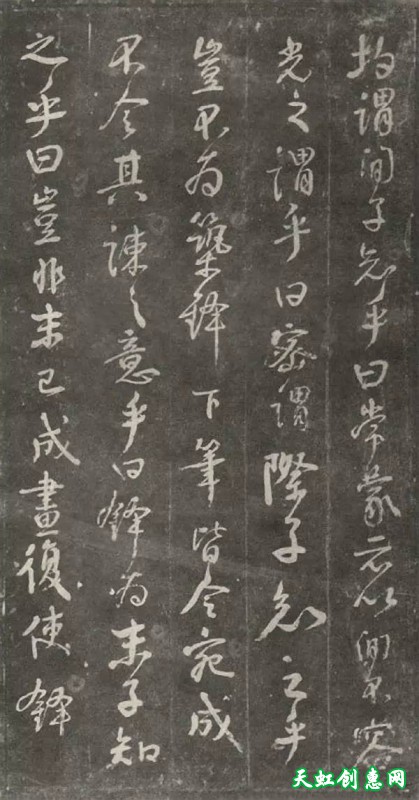 均謂間子知乎曰常蒙示以間不容
光之謂乎曰密謂際子知之乎
豈不為築鋒下筆皆令宛成
不令其疎之意乎曰鋒為末子知
之乎曰豈非末已成畫復使鋒
天虹创惠网